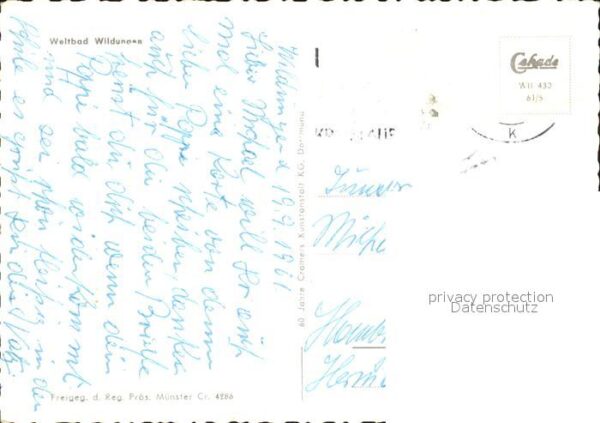 Weltbad Wildungen
Wildungen d. 19.9.1961
Lieber Michael will Dir auch
mal eine Karte von deinem
lieben Pappi schreiben, danke
auch für die beiden Briefe
freust du dich wenn dein
Pappi bald wiederkommt
und sei schön fleißig in der
Schule es grüßt
Freigeg. d. Reg. Präs. Münster Cr. 4286
60 Jahre Cramers Kunstanstalt KG. Dortmund
Cekade
WII 432
61/5
K
Jungen
Hambu
privacy protection
Datenschutz